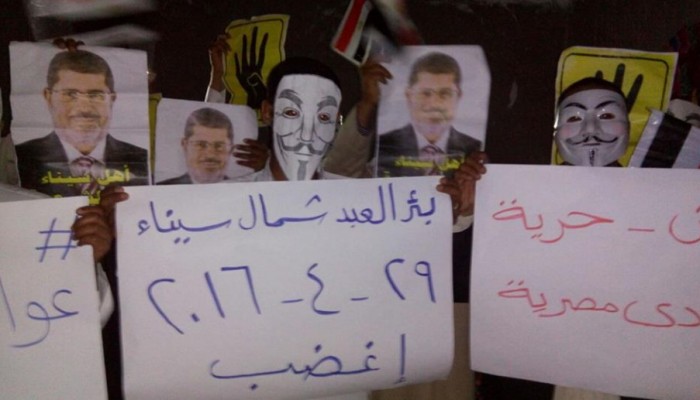 أهل سيناء
أهل سيناء
#
عوا
بئر العبد شمال سيناء
٢٩ - ٤ - ٢٠١٦
إغضب
ـش - حرية
دى مصرية